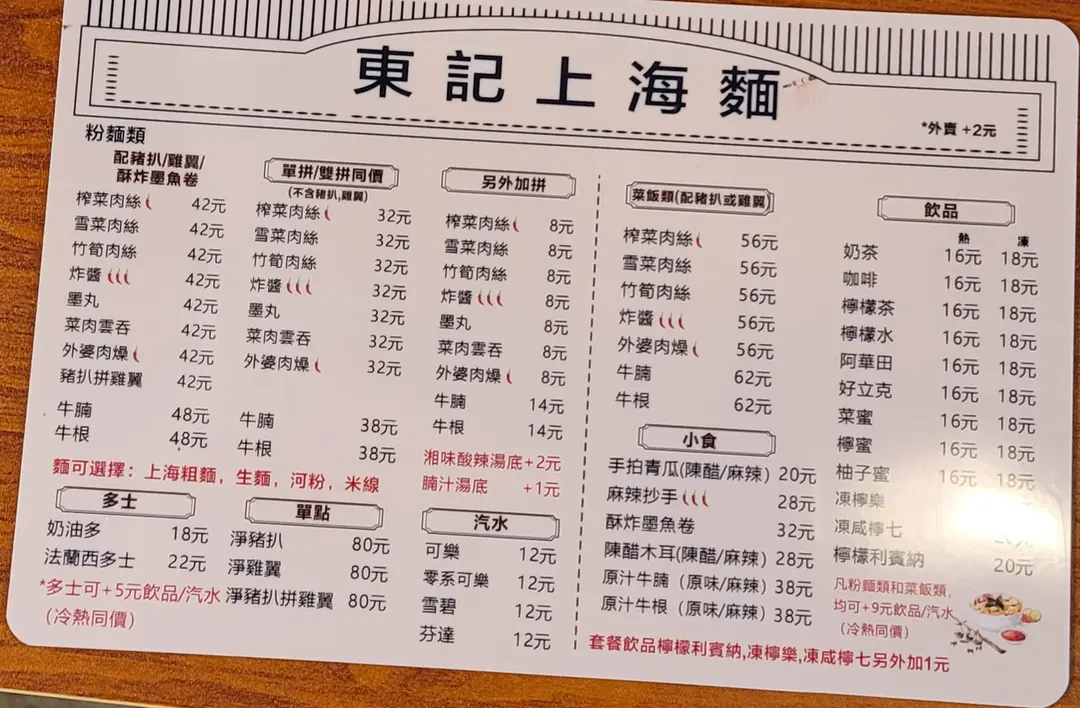 東記上海麵
*外賣 +2元
粉麵類
配豬扒/雞翼/
酥炸墨魚卷
榨菜肉絲 42元
雪菜肉絲 42元
竹筍肉絲 42元
炸醬 42元
墨丸 42元
菜肉雲吞 42元
外婆肉燥 42元
豬扒拼雞翼 42元
牛腩 48元
牛根 48元
單拼/雙拼同價
(不含豬扒,雞翼)
榨菜肉絲 32元
雪菜肉絲 32元
竹筍肉絲 32元
炸醬 32元
墨丸 32元
菜肉雲吞 32元
外婆肉燥 32元
牛腩 38元
牛根 38元
另外加拼
榨菜肉絲 8元
雪菜肉絲 8元
竹筍肉絲 8元
炸醬 8元
墨丸 8元
菜肉雲吞 8元
外婆肉燥 8元
牛腩 14元
牛根 14元
湘味酸辣湯底+2元
腩汁湯底 +1元
麵可選擇：上海粗麵，生麵，河粉，米線
多士
奶油多 18元
法蘭西多士 22元
*多士可+5元飲品/汽水
(冷熱同價)
單點
淨豬扒 80元
淨雞翼 80元
淨豬扒拼雞翼 80元
汽水
可樂 12元
零系可樂 12元
雪碧 12元
芬達 12元
菜飯類(配豬扒或雞翼)
榨菜肉絲 56元
雪菜肉絲 56元
竹筍肉絲 56元
炸醬 56元
外婆肉燥 56元
牛腩 62元
牛根 62元
小食
手拍青瓜(陳醋/麻辣) 20元
麻辣抄手 28元
酥炸墨魚卷 32元
陳醋木耳(陳醋/麻辣) 28元
原汁牛腩（原味/麻辣）38元
原汁牛根（原味/麻辣）38元
飲品
熱 凍
奶茶 16元 18元
咖啡 16元 18元
檸檬茶 16元 18元
檸檬水 16元 18元
阿華田 16元 18元
好立克 16元 18元
菜蜜 16元 18元
檸蜜 16元 18元
柚子蜜 16元 18元
凍檸樂
凍咸檸七
檸檬利賓納 20元
凡粉麵類和菜飯類,
均可+9元飲品/汽水
(冷熱同價)
套餐飲品檸檬利賓納,凍檸樂,凍咸檸七另外加1元